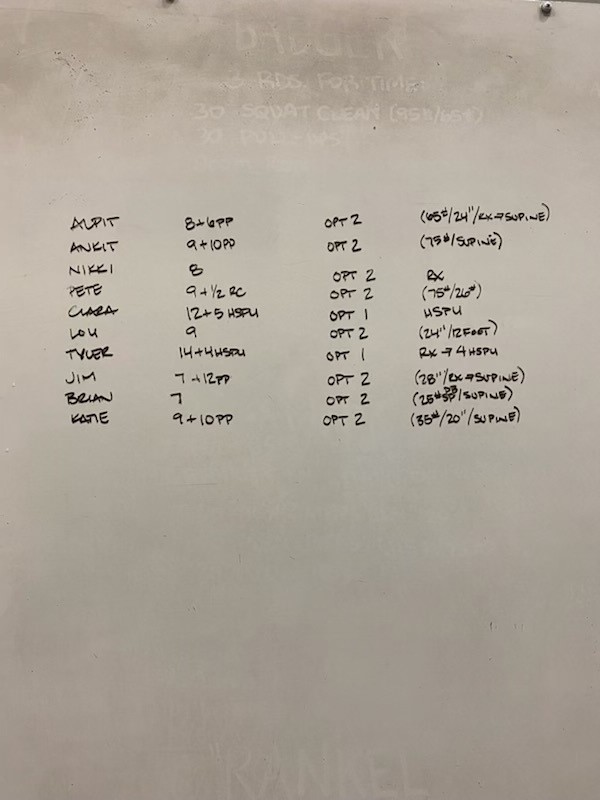 3 RDS FOR TIME
30 SQUAT CLEAN (95#/65#)
30 PULL-UPS
ALPIT 8+6PP OPT 2 (65#/24"/RX→SUPINE)
ANKIT 9+10PP OPT 2 (75#/SUPINE)
NIKKI 8 OPT 2 RX
PETE 9+1/2 RC OPT 2 (75#/26#)
CLARA 12+5 HSPU OPT 1 HSPU
LOU 9 OPT 2 (24"/12 FOOT)
TYLER 14+4HSPU OPT 1 RX→4 HSPU
JIM 7+12PP OPT 2 (28"/RX→SUPINE)
BRIAN 7 OPT 2 (25# DB/SUPINE)
KATIE 9+10PP OPT 2 (35#/20"/SUPINE)
"RANKEL